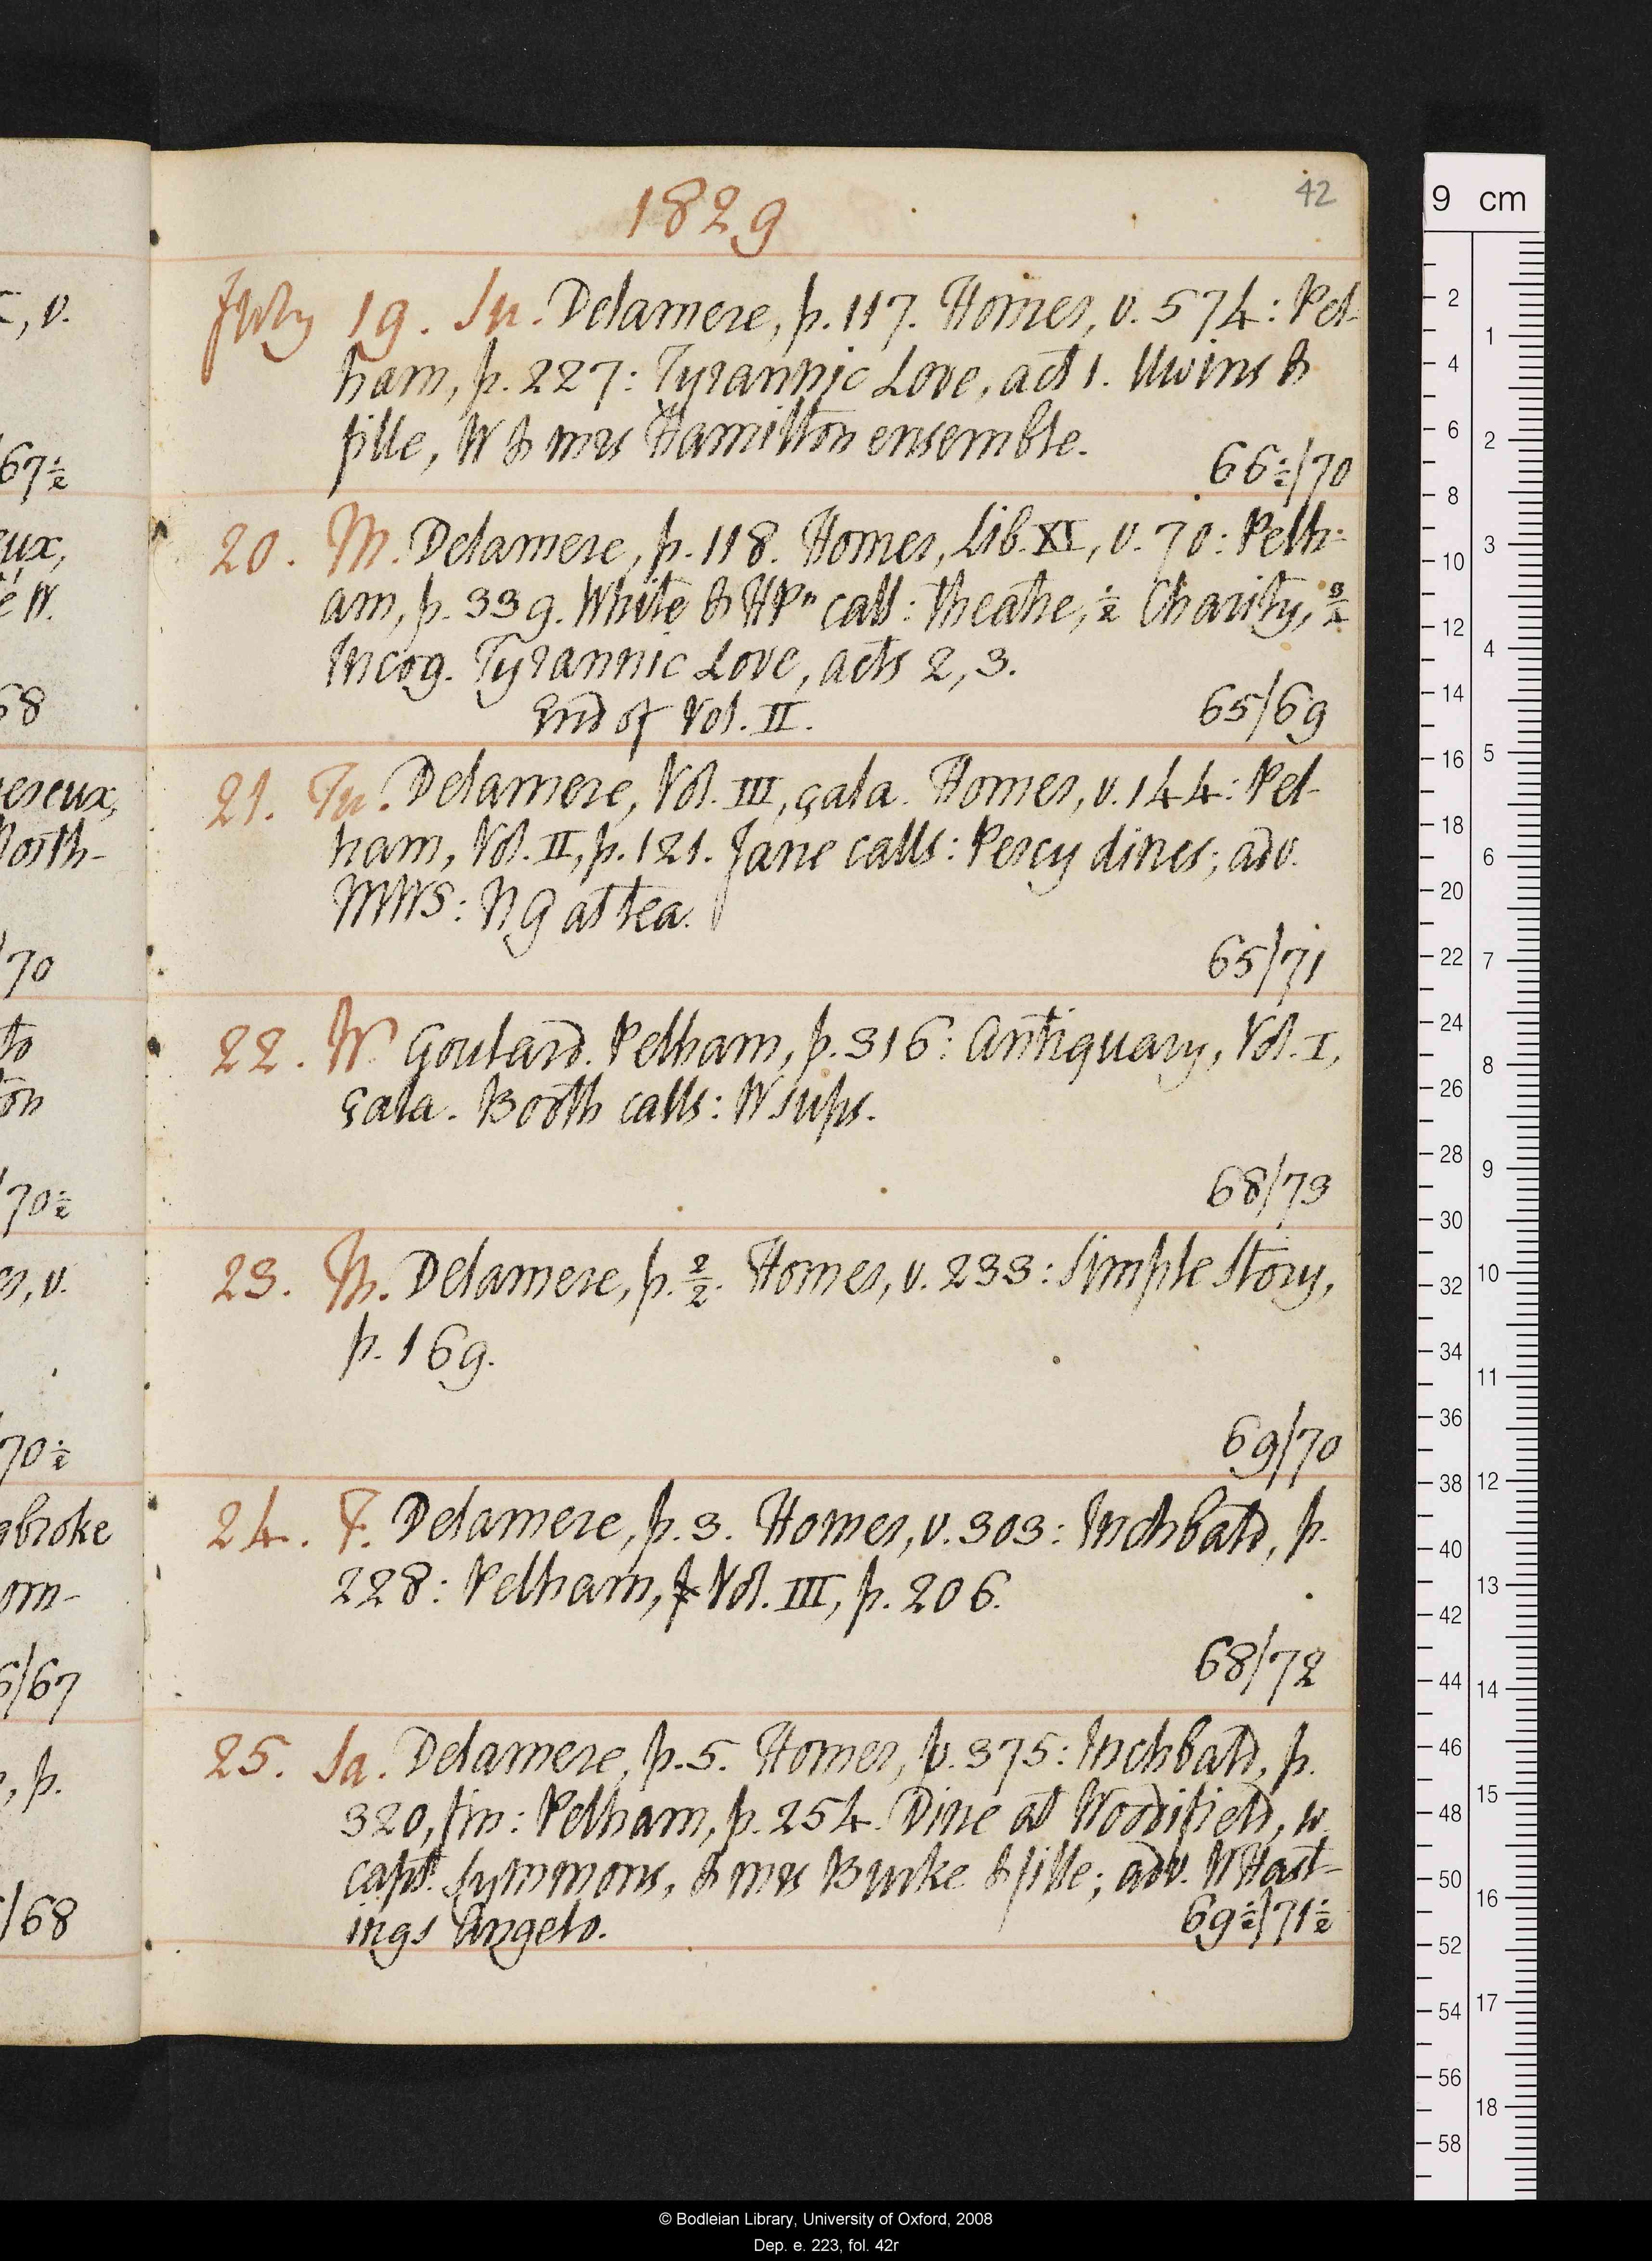 42
1829
July 19. Su. Delamere, p. 117. Homer, v. 574: Pel-
ham, p. 227: Tyrannic Love, act 1. Uwins &
fille, W & mrs Hamilton ensemble.
66½/70
20. M. Delamere, p. 118. Homer, Lib. XI, v. 70: Pelh-
am, p. 339. White & HPn call: theatre, ½ Charity, ¾
Incog. Tyrannic Love, acts 2, 3.
End of Vol. II.
65/69
21. Tu. Delamere, Vol. III, çala. Homer, v. 144: Pel-
ham, Vol. II, p. 121. Jane calls: Percy dines; adv.
MWS: NG at tea.
65/71
22. W. Goulard. Pelham, p. 316: Antiquary, Vol. I,
çala. Booth calls: W sups.
68/73
23. Th. Delamere, p. 2/2. Homer, v. 233: Simple Story,
p. 169.
69/70
24. F. Delamere, p. 3. Homer, v. 303: Inchbald, p.
228: Pelham, Vol. III, p. 206.
68/72
25. Sa. Delamere, p. 5. Homer, v. 375: Inchbald, p.
320, fin: Pelham, p. 254. Dine at Woodifield, w.
capt. Symmons, & mrs Burke & fille; adv. W Hast-
ings Angelo.
69½/71½
, v.
67½
eux,
é W.
68
vereux,
North-
/70
to
ton
/70½
er, v.
70½
mbroke
om-
6/67
, p.
/68
9 cm
2
4
6
8
10
12
14
16
18
20
22
24
26
28
30
32
34
36
38
40
42
44
46
48
50
52
54
56
58
1
2
3
4
5
6
7
8
9
10
11
12
13
14
15
16
17
18
© Bodleian Library, University of Oxford, 2008
Dep. e. 223, fol. 42r